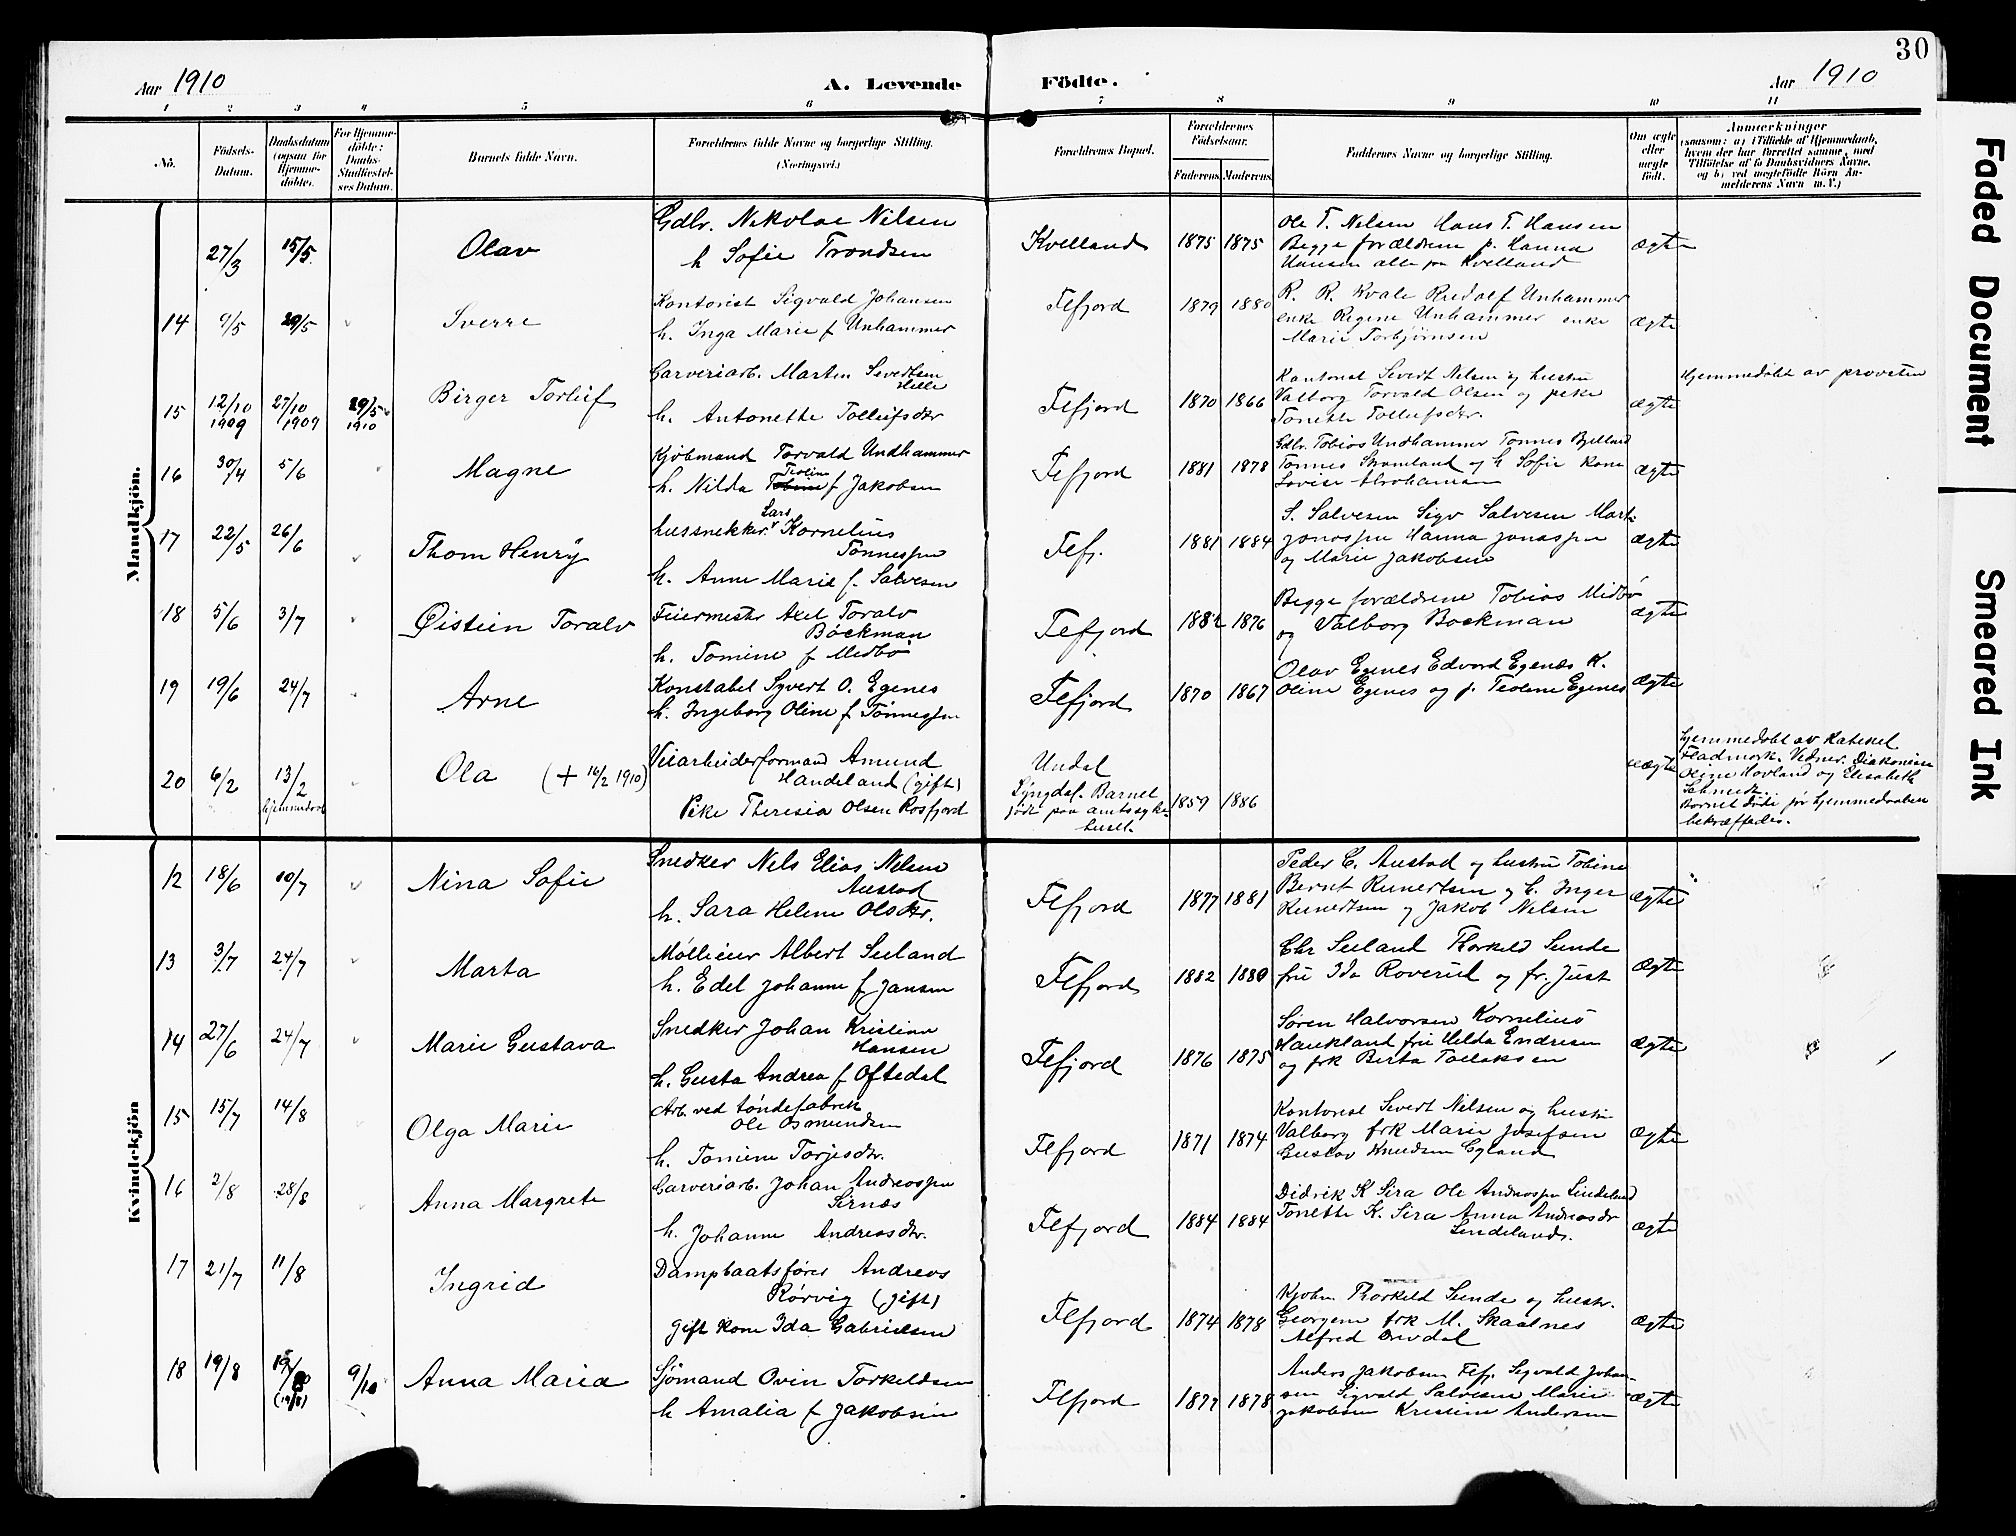 30
Aar 1910
A. Levende Födte.
Aar 1910
1 2 3 4 5 6 7 8 9 10 11
No.
Födsels-Datum.
Daabsdatum (ogsaa for Hjemme-döbte).
For Hjemme-döbte: Daabs-Stadfæstel-ses Datum.
Barnets fulde Navn.
Forældrenes fulde Navne og borgerlige Stilling. (Næringsvei.)
Forældrenes Bopæl.
Forældrenes Födselsaar.
Faderens. Moderens.
Faddernes Navne og borgerlige Stilling.
Om ægte eller uægte födt.
Anmærkninger
(saasom: a) i Tilfælde af Hjemmedaab, hvem der har forrettet samme, med Tilföielse af to Daabsvidners Navne, og b) ved uægtefödte Börn An-melderens Navn m. V.)
Mandkjön.
27/3 15/5. Olav
Gdbr. Nikolai Nilsen
h Sofie Trondsen
Kvelland 1875 1875
Ole T. Nilsen Hans T. Hansen
Begge forældrene p. Hanna
Hansen alle paa Kvelland
ægte
14 9/5 29/5 Sverre
Kontorist Sigvald Johansen
h. Inga Marie f Unhammer
Flefjord 1879 1880
R. R. Kvale Rudolf Unhammer
enke Regine Unhammer enke
Marie Torbjörnsen
ægte
15 12/10 1909 27/10 1909 29/5 1910 Birger Torleif
Garveriarb. Martin Severtsen
Hille
h. Antonette Tolleifsdtr
Flefjord 1870 1866
Kontorist Severt Nilsen og hustru
Valborg Torvald Olsen og pike
Tonette Tolleifsdtr.
ægte
Hjemmedöbt av provsten
16 30/4 5/6 Magne
Kjöbmand Torvald Undhammer
h. Hilda Teoline f Jakobsen
Flefjord 1881 1878
Gdbr. Tobias Undhammer Tönnes Bjelland
Tönnes Strömland og h Sofie kone
Lovise Abrahamsen
ægte
17 22/5 26/6 Thom Henry
Hussnekker Lars Kornelius
Tönnessen
h. Anne Marie f. Salvesen
Flefj. 1881 1884
S. Salvesen Sigv Salvesen Mart.
Jonassen Hanna Jonassen
og Marie Jakobsen
ægte
18 5/6 3/7 Øistein Toralv
Feiermester Axel Toralv
Böckman
h. Tomine f Midbö
Flefjord 1882 1876
Begge forældrene Tobias Midbö
og Valborg Bockman
ægte
19 19/6 24/7 Arne
Konstabel Syvert O. Egenes
h. Ingeborg Oline f Tönnessen
Flefjord 1870 1867
Olav Egenes Edvard Egenæs K.
Oline Egenes og p. Teoline Egenes
ægte
20 6/2 13/2 hjemmedöbt Ola (+ 16/2 1910)
Veiarbeiderformand Amund
Handeland (gift)
Pike Theresia Olsen Rosfjord
Undal
Lyngdal. Barnet
födt paa amtssyke-
huset.
1859 1886
uægte
Hjemmedöbt av kateket
Fladmork. Vidner: Diakonisse
Oline Hovland og Elisabeth
Schmedt.
Barnet döde för hjemmedaaben
bekræftedes.
Kvindekjön
12 18/6 10/7 Nina Sofie
Snedker Nels Elias Nelsen
Austad
h. Sara Helene Olsdtr.
Flefjord 1877 1881
Peder C. Austad og hustru Tobine
Bernt Reinertsen og h. Inger
Reinertsen og Jakob Nelsen
ægte
13 3/7 24/7 Marta
Mölleier Albert Seeland
h. Edel Johanne f Jansen
Flefjord 1882 1880
Chr Seeland Thorkeld Sunde
fru Ida Roverud og fr. Just
ægte
14 27/6 24/7 Marie Gustava
Snedker Johan Kristian
Hansen
h. Gusta Andrea f Oftedal
Flefjord 1876 1875
Sören Halvorsen Kornelius
Haukland fru Hilda Endresen
og frk Berta Tollaksen
ægte
15 15/7 14/8 Olga Marie
Arb. ved töndefabrik
Ole Osmundsen
h. Tomine Torjesdtr.
Flefjord 1871 1874
Kontorist Severt Nilsen og hustru
Valborg frk Marie Josefsen
Gustav Knudsen Egeland
ægte
16 2/8 28/8 Anna Margrete
Garveriarb. Johan Andreassen
Sirnæs
h. Johanne Andreasdtr.
Flefjord 1884 1884
Didrik K Sira Ole Andreassen Lindeland
Tonette K. Sira Anna Andreasdtr
Lindeland.
ægte
17 21/7 11/8 Ingrid
Dampbaatsförer Andreas
Rörvig (gift)
gift kone Ida Gabrielsen
Flefjord 1874 1878
Kjöbm. Thorkeld Sunde og hustr.
Georgine frk M. Skaalnes
Alfred Drivdal
ægte
18 19/8 9/10 Anna Maria
Sjömand Ovin Torkeldsen
h Amalia f Jakobsen
Flefjord 1877 1878
Anders Jakobsen Flefj. Sigvald Johan-
sen Sigvald Salvesen Marie
Jakobsen Kristine Andersen
ægte
Faded Document
Smeared Ink